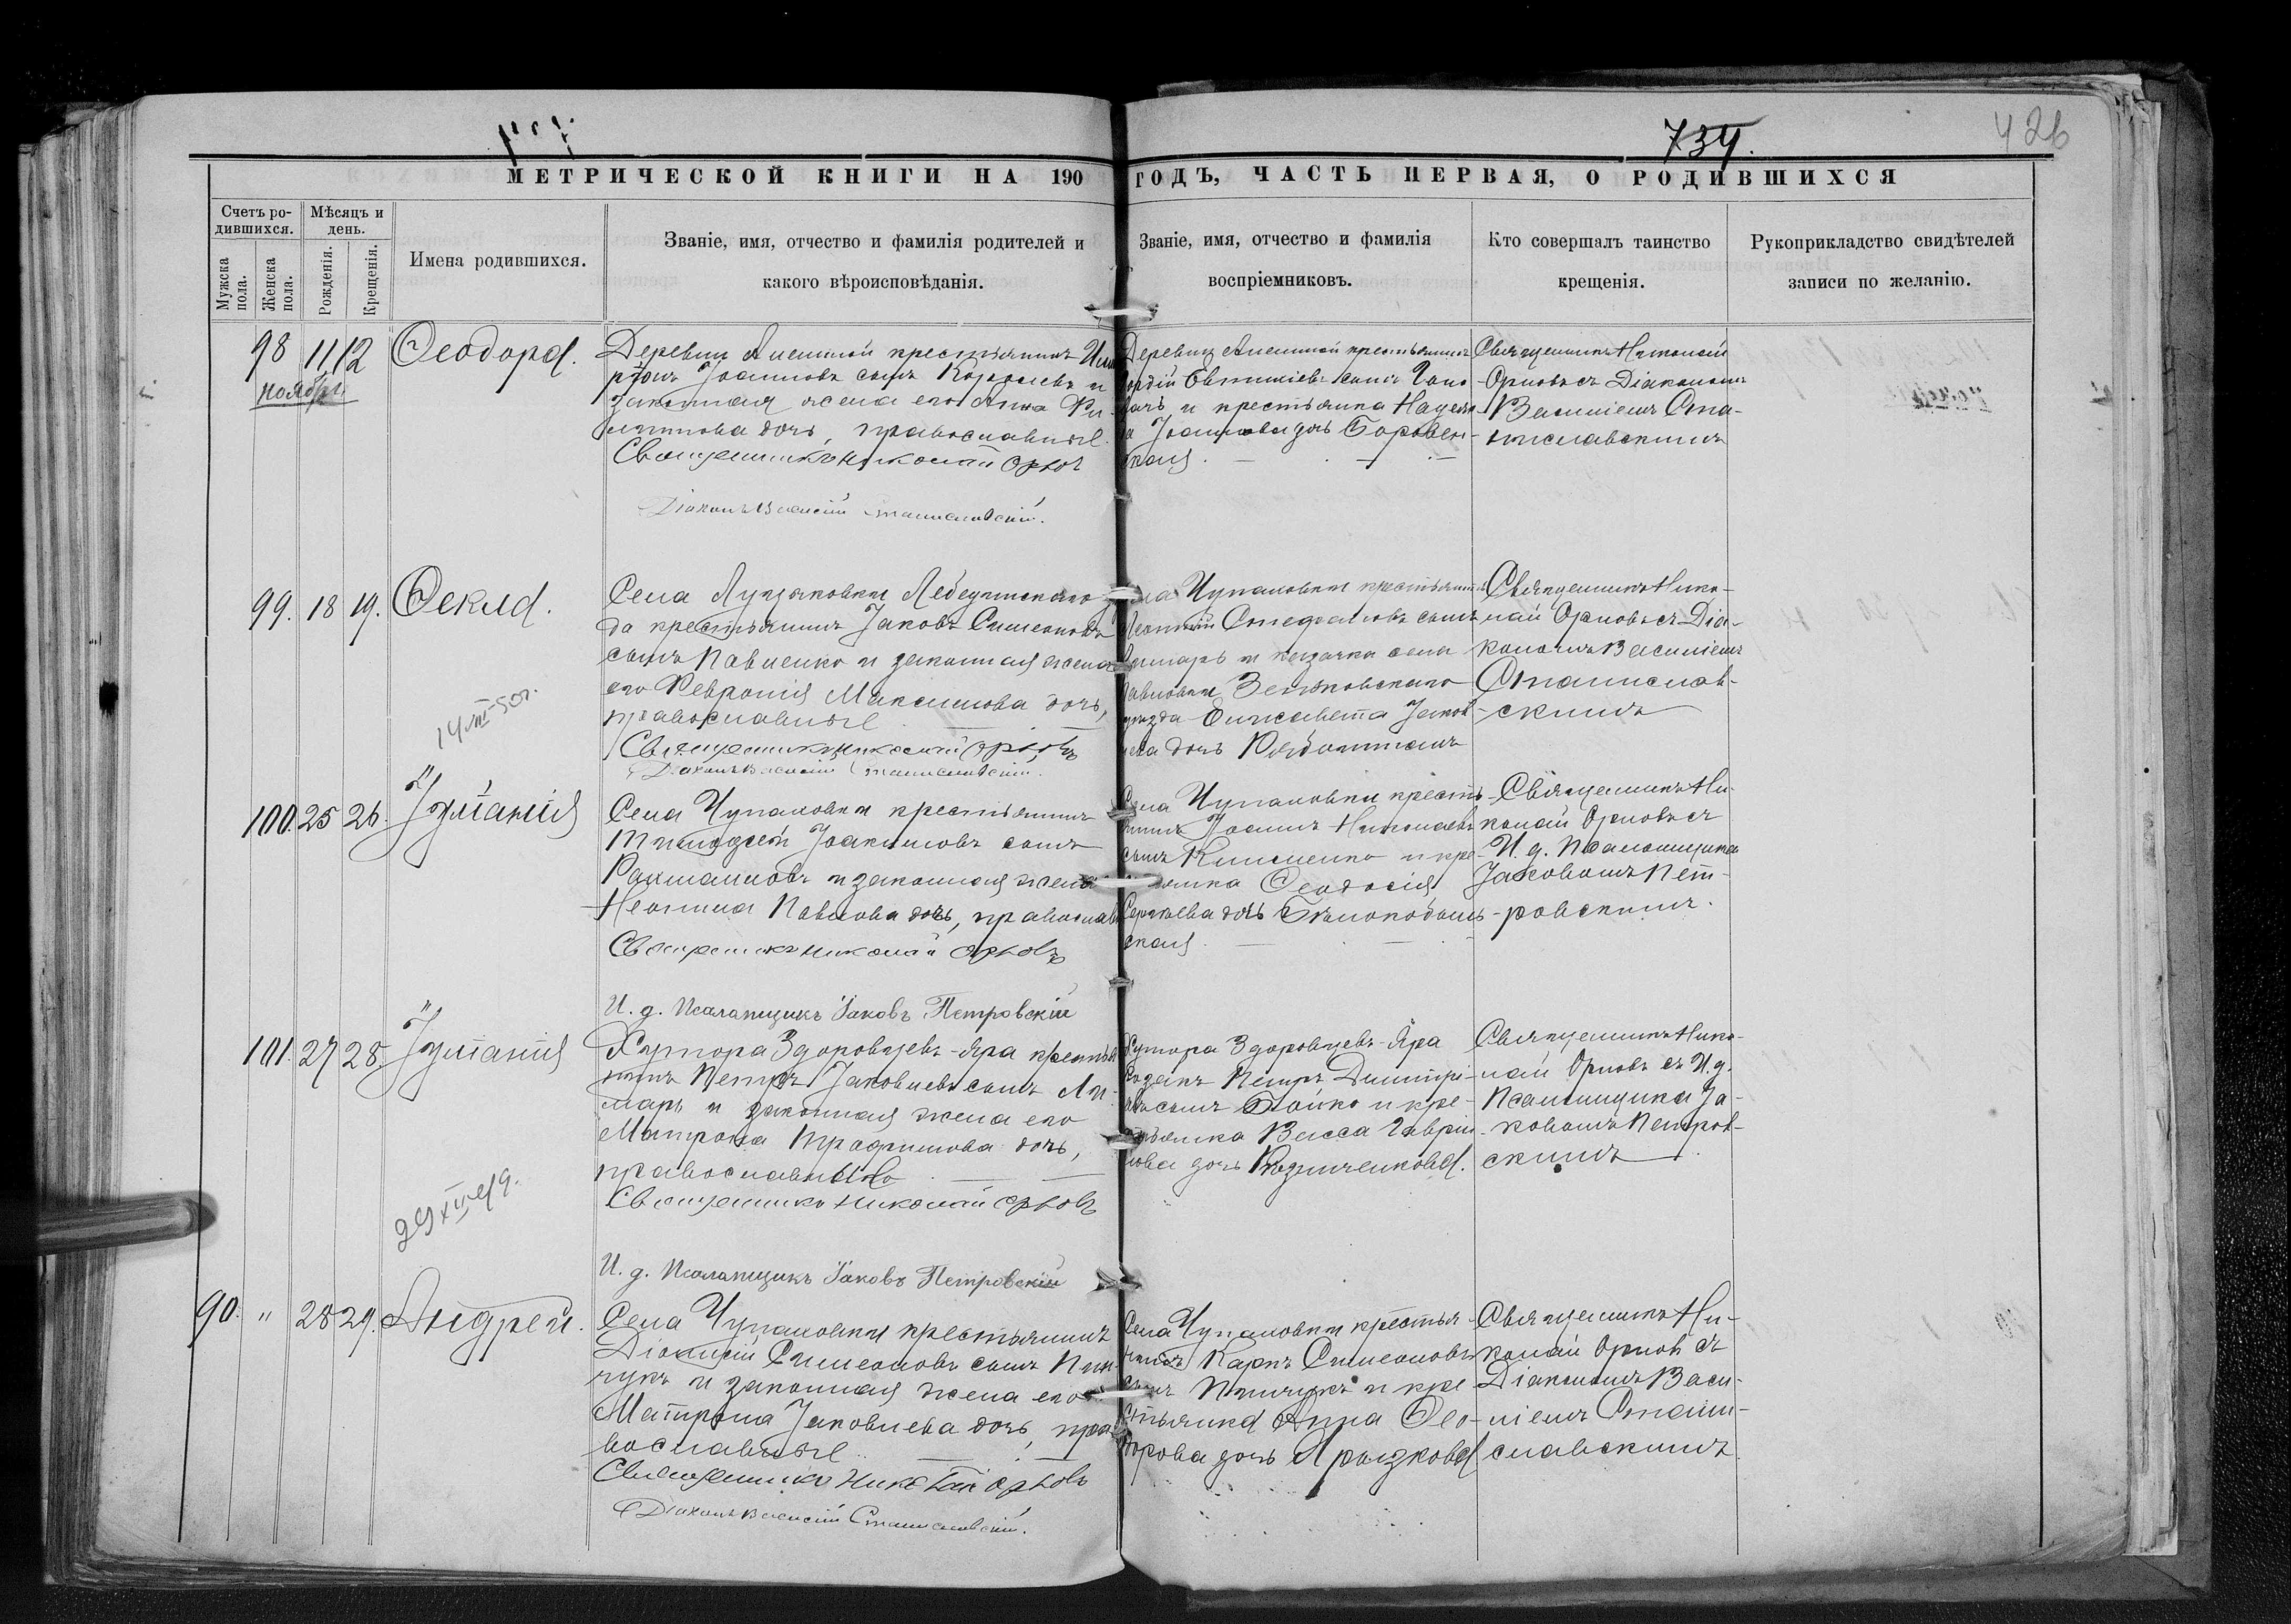 734.
426
МЕТРИЧЕСКОЙ КНИГИ НА 190 ГОДЪ, ЧАСТЬ ПЕРВАЯ, О РОДИВШИХСЯ
Счетъ ро-
дившихся.
Мужска
пола.
Женска
пола.
Мѣсяцъ и
день.
Рожденія.
Крещенія.
Имена родившихся.
Званіе, имя, отчество и фамилія родителей и
какого вѣроисповѣданія.
Званіе, имя, отчество и фамилія
воспріемниковъ.
Кто совершалъ таинство
крещенія.
Рукоприкладство свидѣтелей
записи по желанію.
98
ноября
11
12
Ѳеодора.
Деревни крестьянинъ
Іоанновъ сынъ Королевъ и
законная жена его Анна Фи-
липпова дочь, православные.
Священникъ Николай Орловъ
Діаконъ Василій Станиславскій.
Деревни крестьянинъ
Евтихіевъ сынъ
и крестьянка
Іоаннова дочь Боровен-
ская.
Священникъ Николай
Орловъ съ Діакономъ
Василіемъ Ста-
ниславскимъ
99.
18
19.
Ѳекла.
Села Лебединскаго
да крестьянинъ Іаковъ Симеоновъ
сынъ Павленко и законная жена
его Феврония Максимова дочь,
православные
Священникъ Николай Орловъ
Діаконъ Василій Станиславскій.
Чупаховки крестьянинъ
Стефановъ сынъ
и казачка села
Зеньковскаго
уѣзда Елисавета Іаков-
лева дочь
Священникъ Нико-
лай Орловъ съ Діа-
кономъ Василіемъ
Станислав-
скимъ
14 III-50г.
100.
25
26.
Іуліанія
Села Чупаховки крестьянинъ
Тимоѳей Іоакимовъ сынъ
Рахмаиловъ и законная жена
Неонила Павлова дочь, православ
Священникъ Николай Орловъ
И. д. Псаломщикъ Іаковъ Петровскій
Села Чупаховки кресть-
янинъ Іоаннъ Николаевъ
сынъ Клименко и кре-
стьянка Ѳеодосія
Сергіева дочь Бѣлокобыль-
ская.
Священникъ Ни-
колай Орловъ съ
И. д. Псаломщика
Іаковомъ Пет-
ровскимъ.
101.
27
28.
Іуліанія
Хутора Здоровцевъ-Яра крестья
нинъ Петръ Іаковлевъ сынъ Ли-
марь и законная жена его
Матрона Трофимова дочь,
православные
Священникъ Николай Орловъ
И. д. Псаломщикъ Іаковъ Петровскій
Хутора Здоровцевъ-Яра
Козакъ Петръ Димитрі-
евъ сынъ Бойко и кре-
стьянка Васса Гаврии-
лова дочь
Священникъ Нико-
лай Орловъ съ И. д.
Псаломщика Іа-
ковомъ Петров-
скимъ
29 XII 49.
90.
"
28
29.
Андрей.
Села Чупаховки крестьянинъ
Діонисій Симеоновъ сынъ Пин-
чукъ и законная жена его
Матрона Іаковлева дочь, пра
вославные
Священникъ Николай Орловъ
Діаконъ Василій Станиславскій.
Села Чупаховки крестья-
нинъ Карпъ Симеоновъ
сынъ Пинчукъ и кре-
стьянка Анна Ѳео-
дорова дочь
Священникъ Ни-
колай Орловъ съ
Діакономъ Васи-
ліемъ Стани-
славскимъ